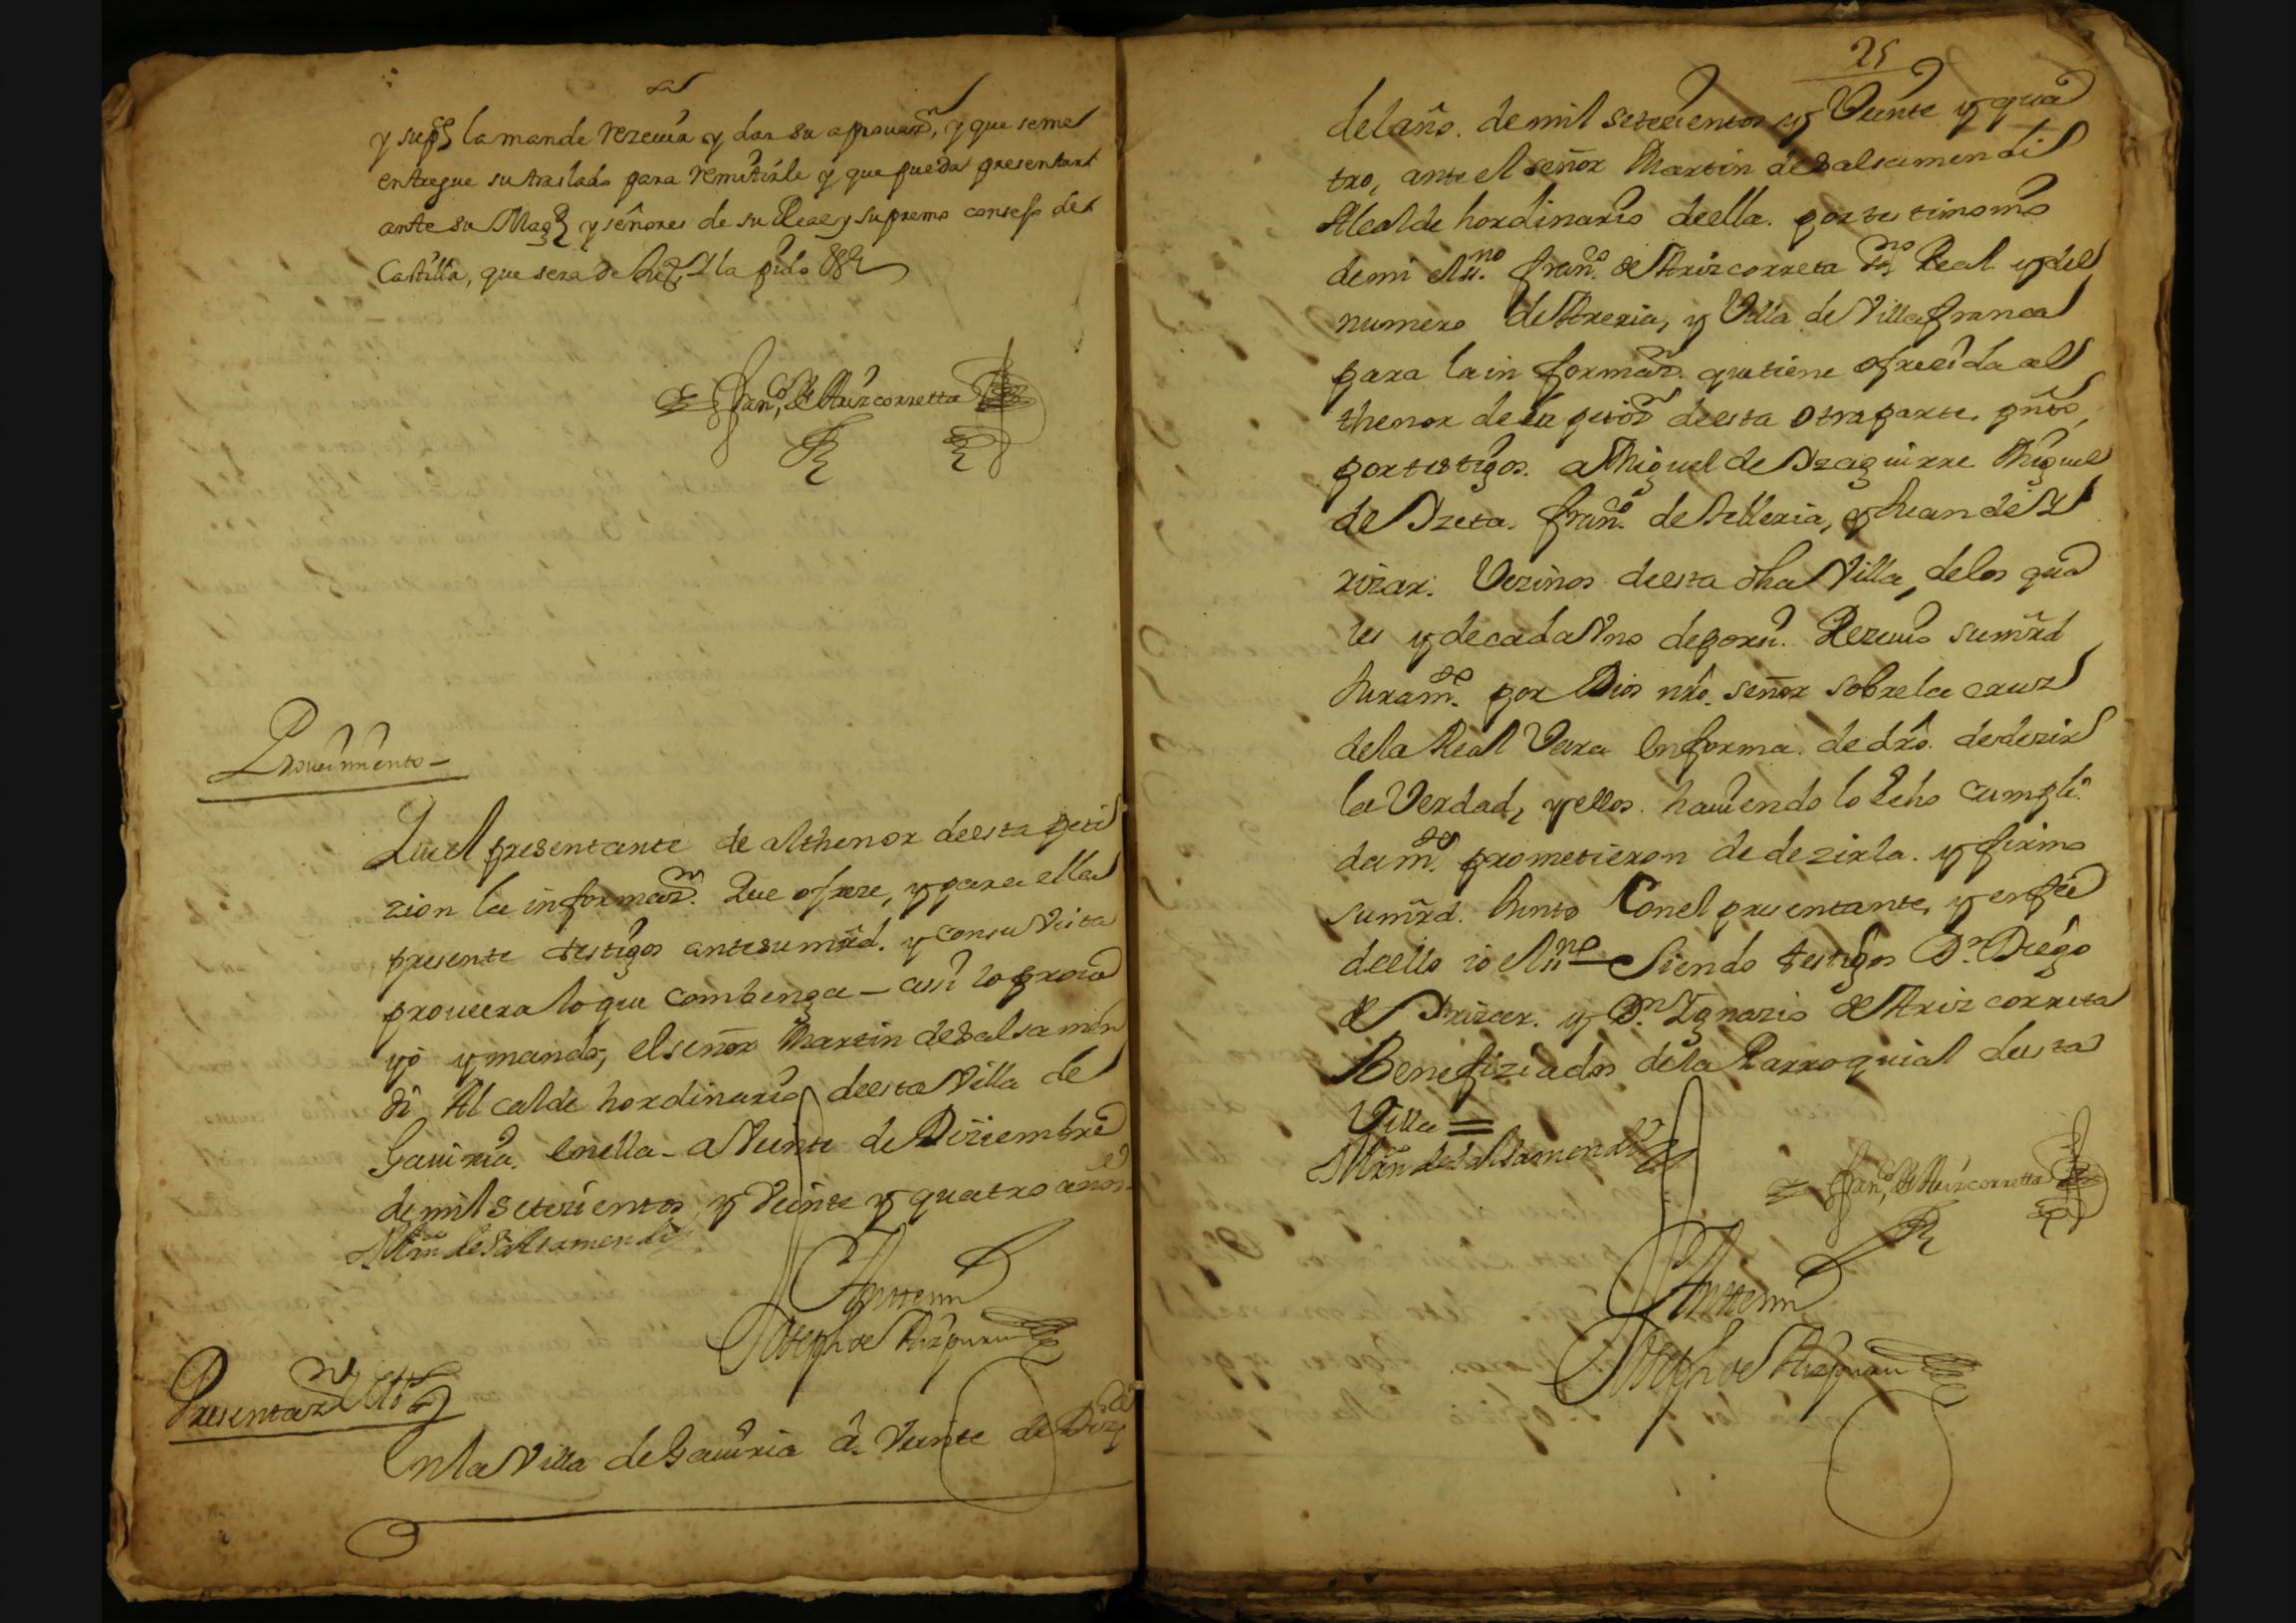 y supco la mande rezeuir y dar su aprouazn, y que seme
entregue su traslado para remitirle y que pueda presentar
ante su Magd y señores de su Real y supremo consejo de
Castilla, que sera de la pido
Franco de Arizcorretta
Proueimiento
Que el presentante de al thenor de esta peti
zion la informazn. Que ofreze, y para ella
presente testigos ante su mrd. y con su vista
proueera lo que combenga - assi lo prove
yó y mando, el señor Martin de Balsamen
di Alcalde hordinario de esta Villa de
Gauiria. en ella - a Veinte de Diziembre
de mil setezientos y Veinte y quatro años
Mrn de Balsamendi
Antemi
Joseph de Aizpuru
Presentazn de tts
En la Villa de Gauiria á Veinte de Dize
25
del año. de mil setezientos y Veinte y qua
tro, ante el señor Martin de Balsamendi
Alcalde hordinario de ella. por testimonio
de mi el ssno. Franco. de Arizcorreta ssno Real y del
numero de Areria, y Villa de Villafranca
para la informazn. que tiene ofrecida al
thenor de la petizn de esta otra parte. pnto,
por testigos. a Miguel de Yzaguirre Miguel
de Yzeta. Franco. de Telleria, y Juan de Y
rizar. Vezinos de esta dha Villa, de los qua
les y de cada Vno de por si. Rezeuio su mrd
Juramto. por Dios nro. señor sobre la cruz
de la Real Vara en forma. de dro. de dezir
la Verdad, y ellos. hauiendo lo echo cumpli
damte. prometieron de dezirla. y firmo
su mrd. Junto Con el presentante, y en fee
de ello io el ssno Siendo testigos Dn. Diego
de Yrizar. y Dn. Ygnazio de Arizcorreta
Benefiziados de la Parroquial de esta
Villa =
Mrn de Balsamendi
Franco de Arizcorretta
Antemi
Joseph de Aizpuru